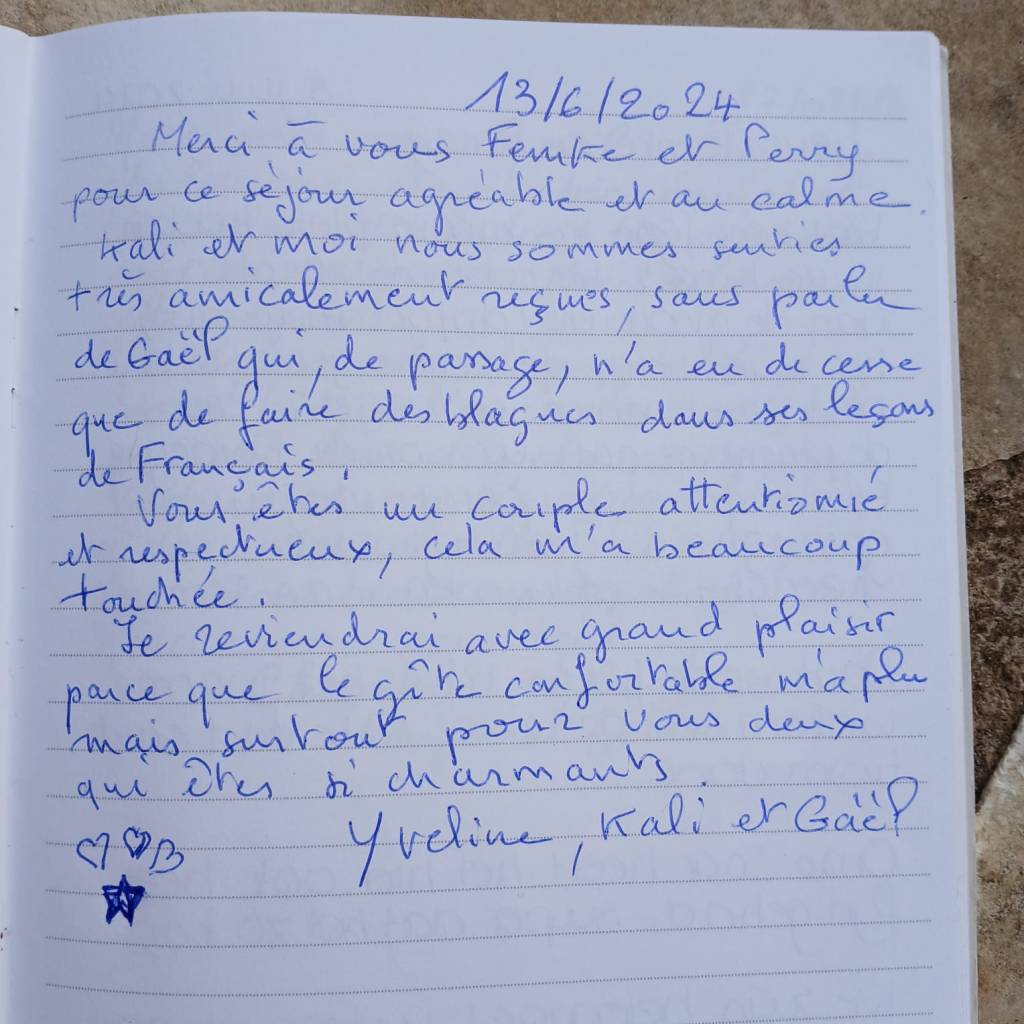 13/6/2024
Merci à vous Femke et Perry
pour ce séjour agréable et au calme.
Kali et moi nous sommes senties
très amicalement reçues, sans parler
de Gaël qui, de passage, n'a eu de cesse
que de faire des blagues dans ses leçons
de Français.
Vous êtes un couple attentionné
et respectueux, cela m'a beaucoup
touchée.
Je reviendrai avec grand plaisir
parce que le gîte confortable m'a plu
mais surtout pour vous deux
qui êtes si charmants.
Yveline, Kali et Gaël